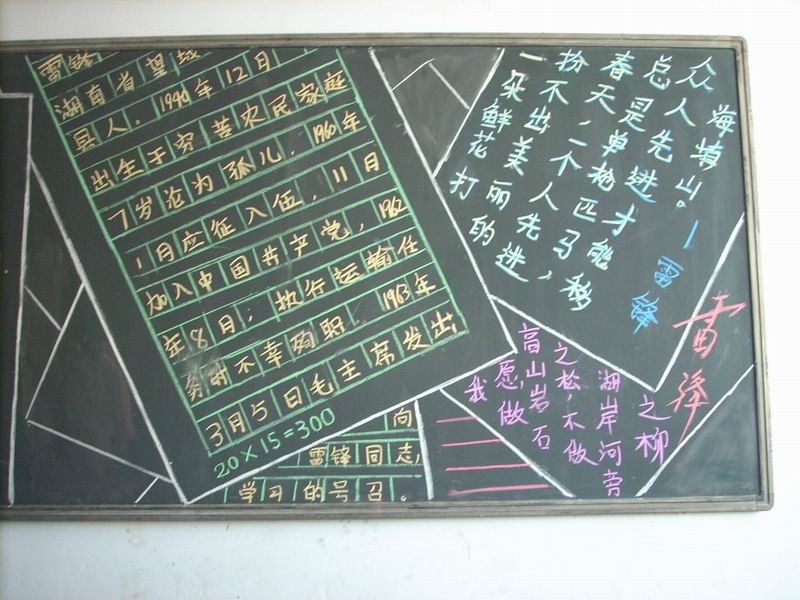 雷锋
湖南省望城
县人。1940年12月
出生于穷苦农民家庭
7岁沦为孤儿. 1960年
1月应征入伍, 11月
加入中国共产党, 1962
年8日; 执行运输任
务时不幸殉职. 1963年
3月5日毛主席发出
20×15=300
向
雷锋同志,
学习的号召。
一朵鲜花打
扮不出美丽的
春天,一个人先进,
总是单枪匹马,
众人先进才能移
海填山。
—雷锋
雷锋
我
愿做
高山岩石
之松,不做
湖岸河旁
之柳